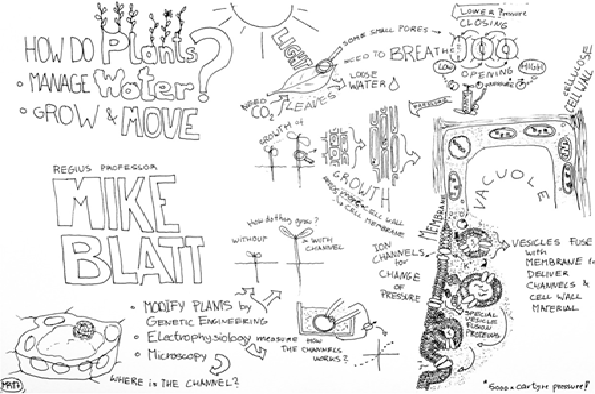 HOW DO Plants
• MANAGE Water?
• GROW & MOVE
REGIUS PROFESSOR
MIKE
BLATT
LIGHT
SOME SMALL PORES
NEED TO BREATHE
LOOSE
WATER
NEED
CO2
LEAVES
LOWER Pressure
CLOSING
LOW
HIGH
OPENING
pressure
CELLULOSE
CELL WALL
GROWTH of
GROWTH
CELL WALL
& CELL MEMBRANE
VACUOLE
MEMBRANE
How do they grow?
WITHOUT
WITH
CHANNEL
ION
CHANNELS
for
CHANGE
OF
PRESSURE
VESICLES FUSE
with
MEMBRANE to
DELIVER
CHANNELS &
CELL WALL
MATERIAL
SPECIAL
VESICLE
FUSION
PROTEINS
• MODIFY PLANTS by
GENETIC ENGINEERING
• Electrophysiology measure HOW
THE CHANNELS
WORKS?
• Microscopy
WHERE is THE CHANNEL?